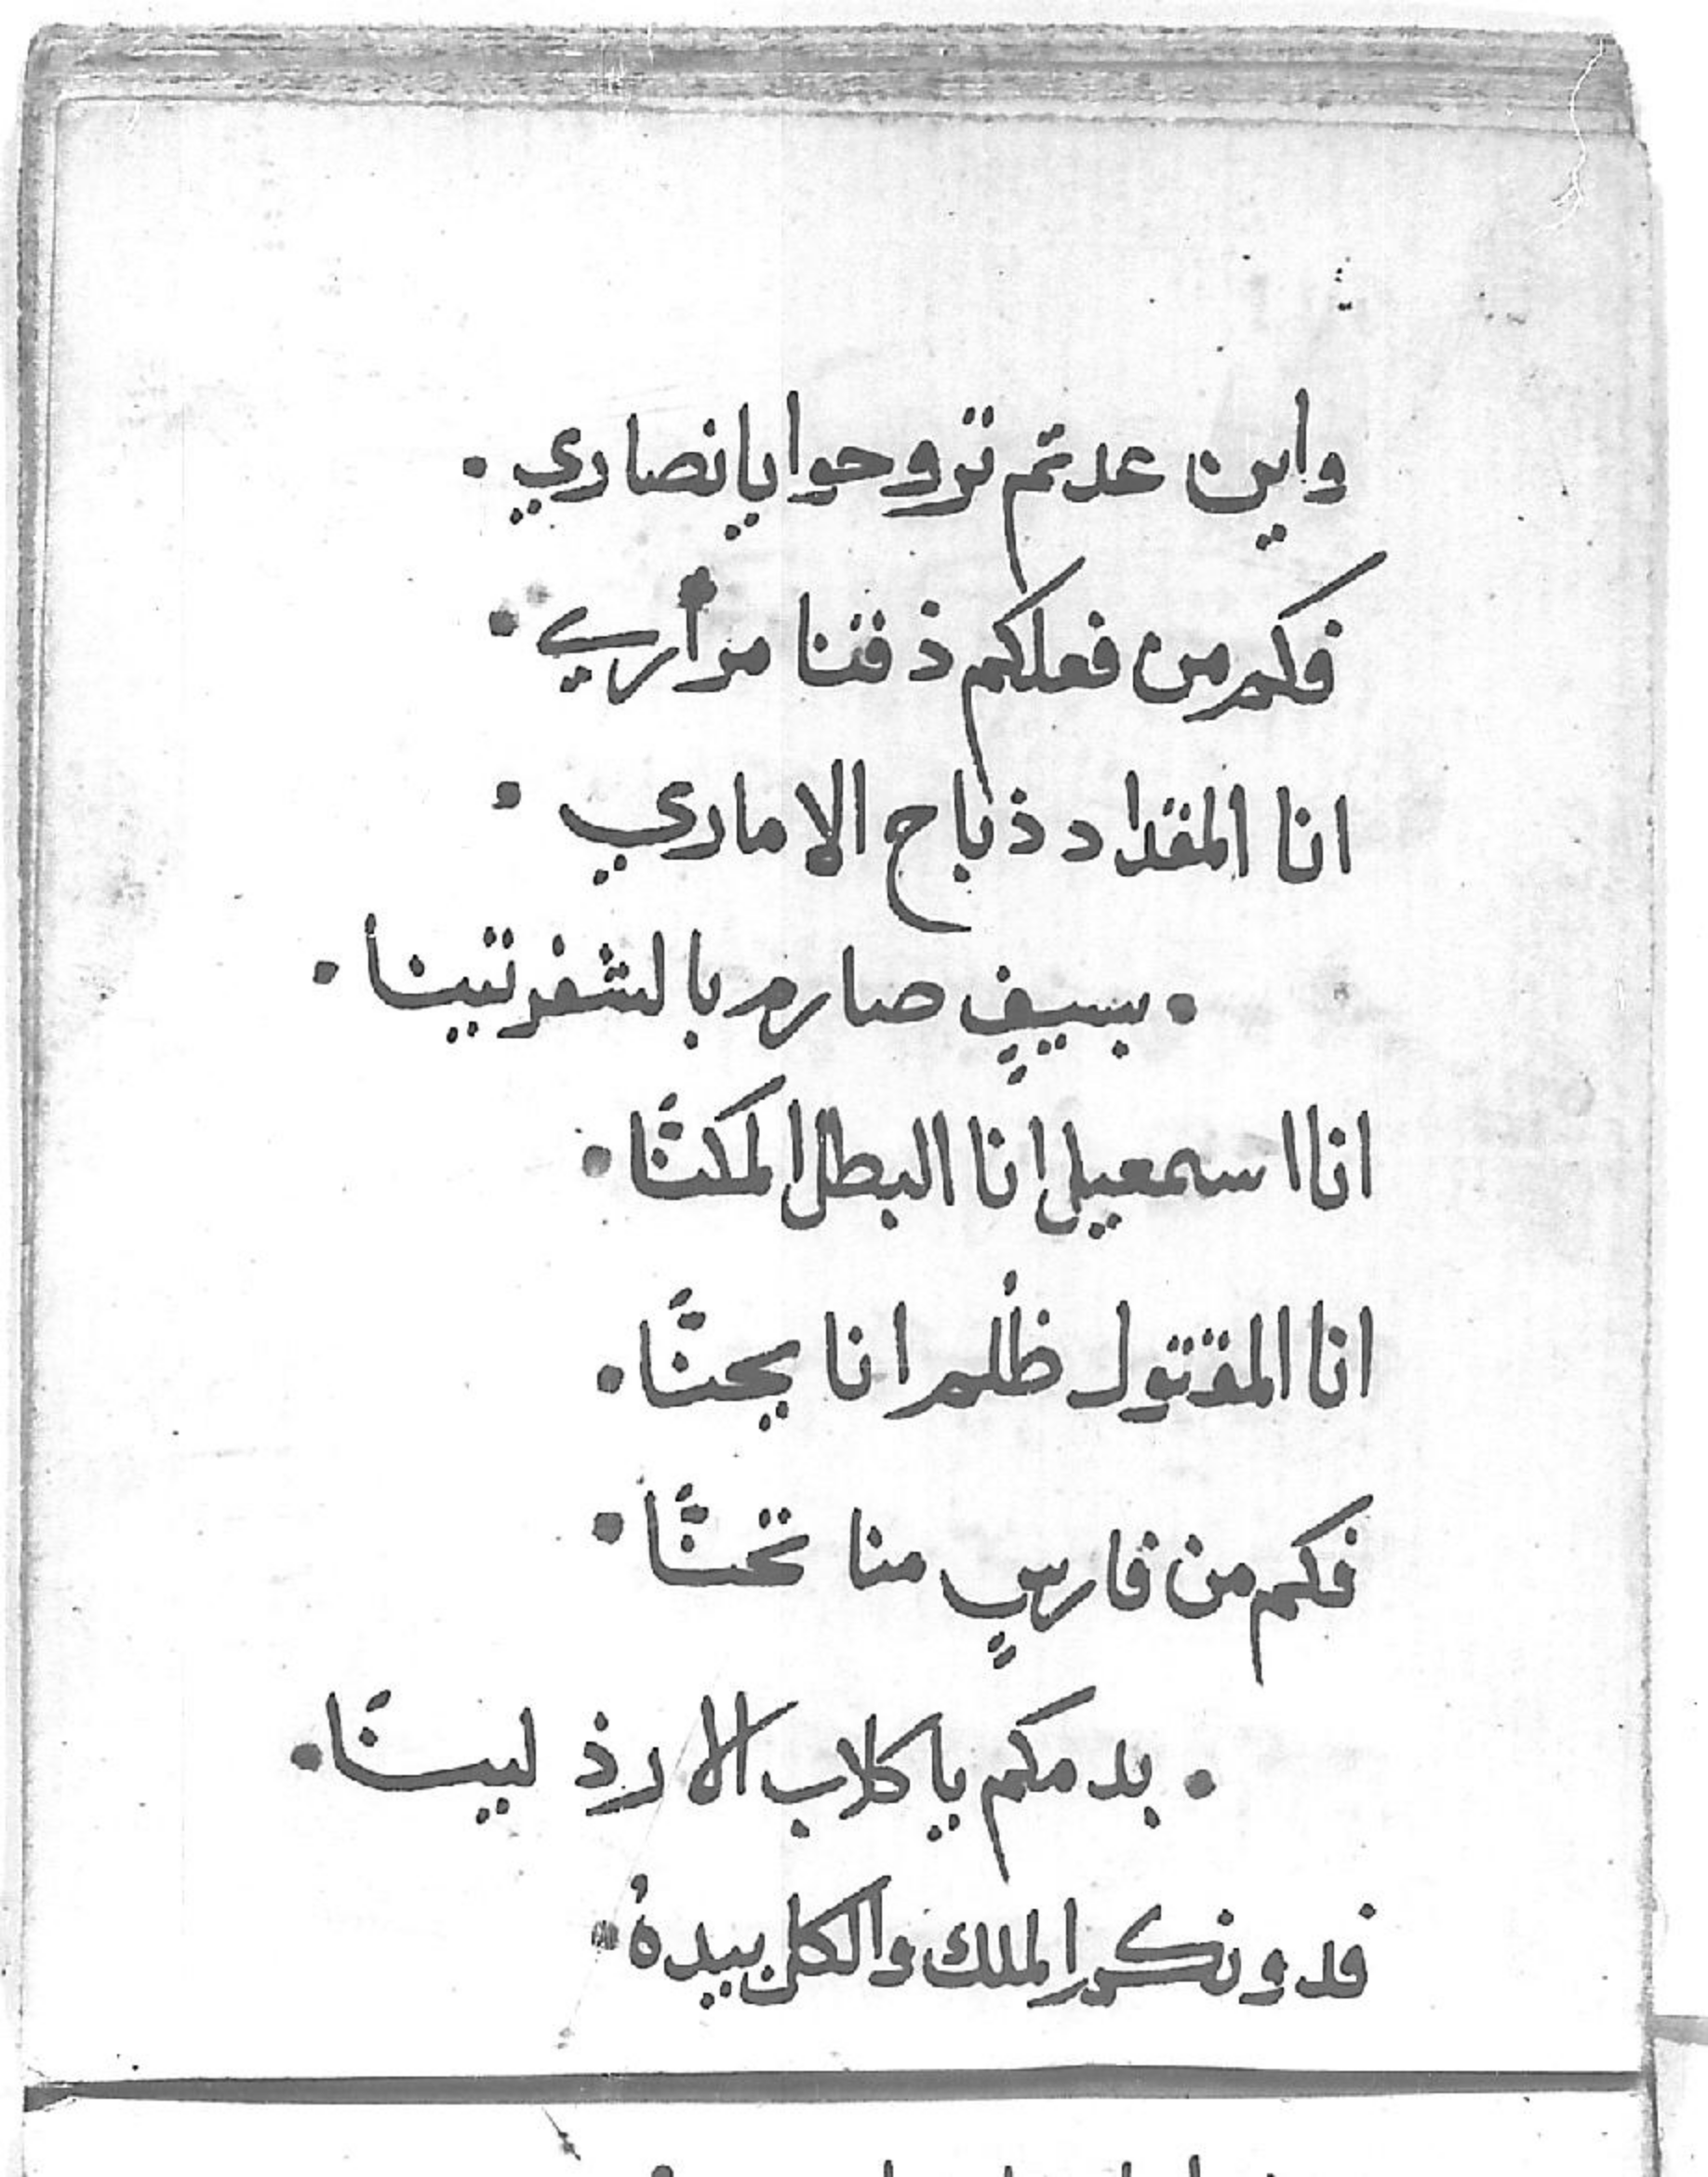 واين عدتم تروحوا يا نصاري .
فكم من فعلكم ذقنا مرأري .
انا المقداد ذباح الاماري .
. بسيفٍ صارم بالشفرتينا .
انا اسمعيل انا البطل المكنًا .
انا المقتول ظُلم انا يحنًا .
فكم من فارسٍ منا تحنًا .
. بدمكم يا كلاب الارذ لينًا .
فدونكم الملك والكل بيدهُ .